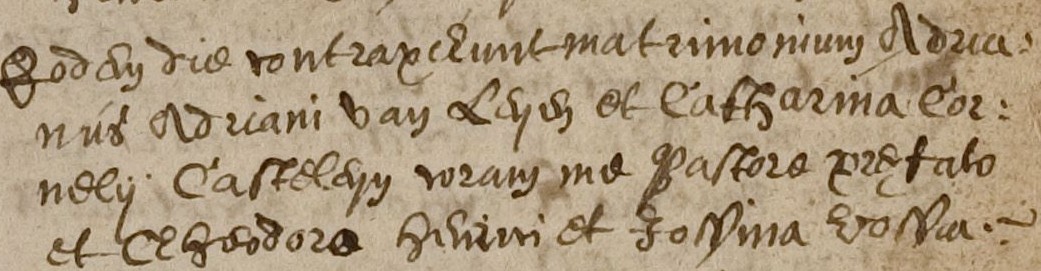 Eodem die contraxerunt matrimonium Adria:
nus Adriani van Leyen et Catharina Cor:
nelij Casteleyn coram me Pastore præfato
et Theodoro Henrici et Jossina